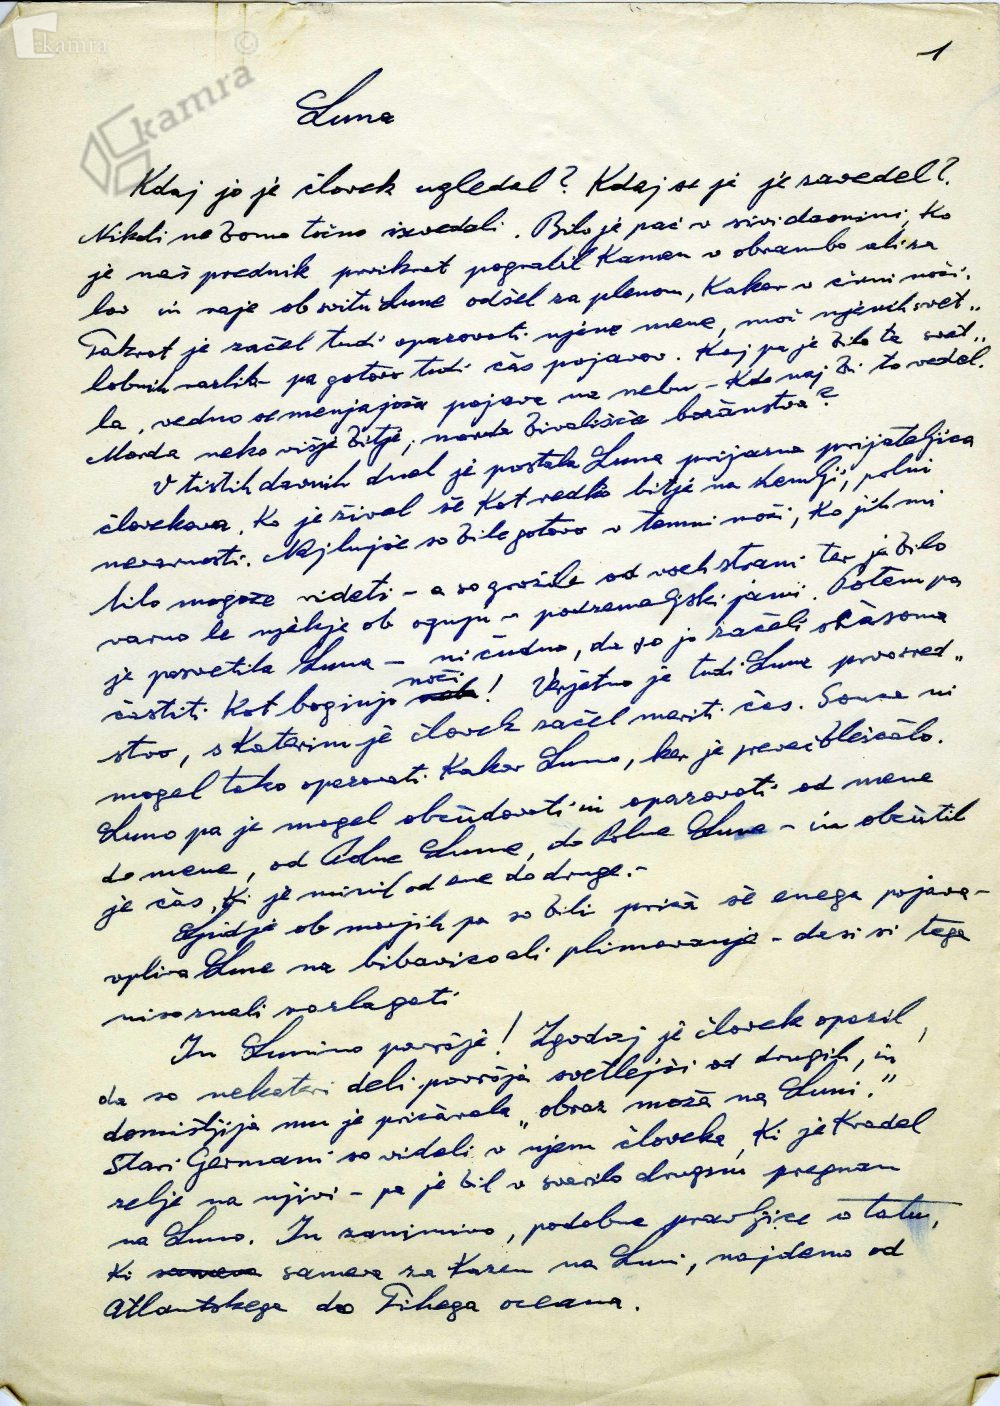 kamra ©
kamra
1
Luna
Kdaj jo je človek ugledal? Kdaj se je je zavedel?
Nikoli ne bomo točno izvedeli. Bilo je pač v sivi davnini, ko
je naš prednik prvikrat pograbil kamen v obrambo ali za
lov in raje ob svitu Lune odšel za plenom, kakor v črni noči.
Takrat je začel tudi opazovati njene mene, moč njenih svet„
lobnih razlik pa gotovo tudi čas pojavov. Kaj pa je bila ta svet„
la, vedno se menjajoča pojava na nebu – kdo naj bi to vedel.
Morda neko višje bitje, morda bivališče božanstva?
V tistih davnih dneh je postala Luna prijazna prijateljica
človekova, ko je žival še kot redko bitje na zemlji, polni
nevarnosti. Najhujše so bile gotovo v temni noči, ko jih ni
bilo mogoče videti – a so grozile od vseh strani ter je bilo
varno le njekje ob ognju v podzemeljski jami. Potem pa
je posvetila Luna – ni čudno, da so jo začeli sčasoma
častiti kot boginjo noči! Verjetno je tudi Luna prvo sred„
stvo, s katerim je človek začel meriti čas. Sonca ni
mogel tako opazovati kakor Luno, ker je preveč bleščalo.
Luno pa je mogel občudovati in opazovati od mene
do mene, od Polne Lune, do Polne Lune – in občutil
je čas, ki je minil od ene do druge.–
Ljudje ob morjih pa so bili priča še enega pojava –
vpliva Lune na bibavico ali plimovanje – da si si tega
niso znali razlagati
In Lunino površje! Zgodaj je človek opazil,
da so nekateri deli površja svetlejši od drugih, in
domišljija mu je pričarala „obraz moža na Luni."
Stari Germani so videli v njem človeka, ki je kradel
zelje na njivi – pa je bil v svarilo drugim pregnan
na Luno. In zanimivo, podobne pravljice o tatu,
ki sameva za kazen na Luni, najdemo od
Atlantskega do Tihega oceana.